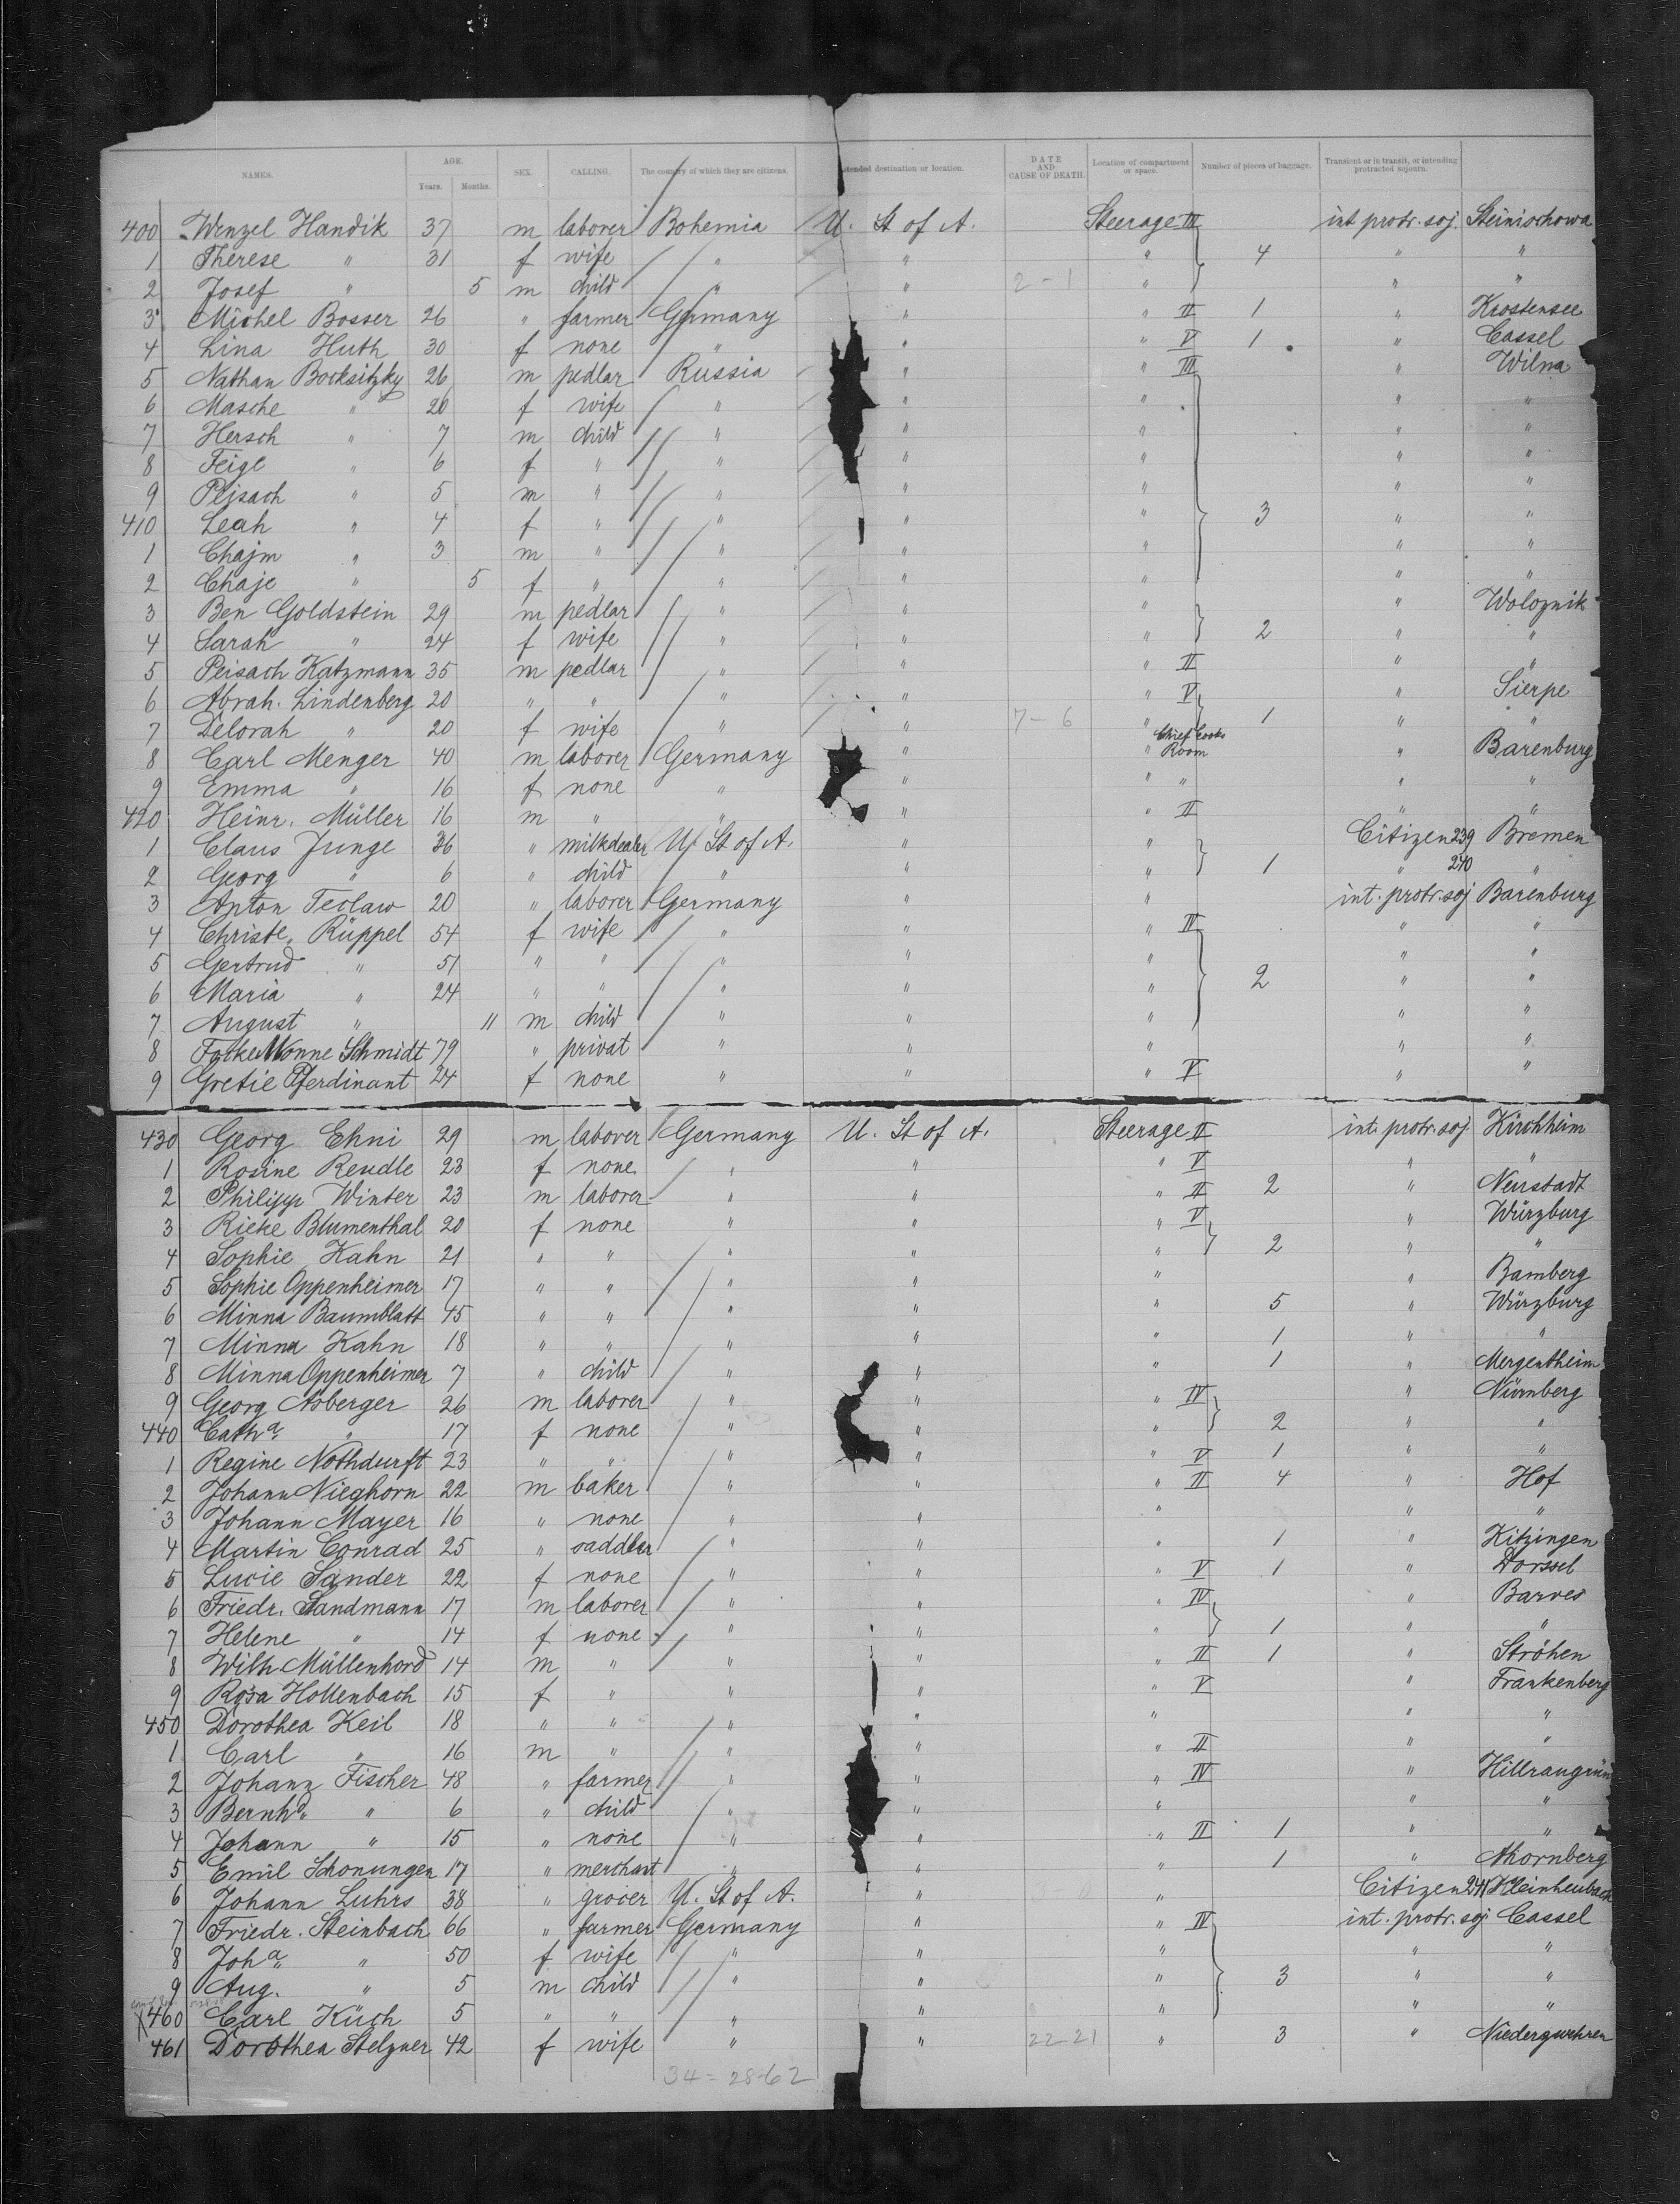 NAMES. AGE. Years. Months. SEX. CALLING. The country of which they are citizens. Intended destination or location. DATE AND CAUSE OF DEATH. Location of compartment or space. Number of pieces of baggage. Transient or in transit, or intending protracted sojourn.
400 Wenzel Handik 37 m laborer Bohemia U. St of A. Steerage III int protr. soj. Steinischowa
1 Therese " 31 f wife " " " 4 " "
2 Josef " 5 m child " " 2-1 " " "
3 Michel Bosser 26 " farmer Germany " " II 1 " Krostensee
4 Lina Huth 30 f none " " " V 1 " Cassel
5 Nathan Bocksitzky 26 m pedlar Russia " " III " Wilna
6 Masche " 20 f wife " " " " "
7 Hersch " 7 m child " " " " "
8 Feige " 6 f " " " " " "
9 Pejsach " 5 m " " " " " "
410 Leah " 4 f " " " " 3 " "
1 Chajm " 3 m " " " " " "
2 Chaje " 5 f " " " " " "
3 Ben Goldstein 29 m pedlar " " " " Woloznik
4 Sarah " 24 f wife " " " 2 " "
5 Peisach Katzmann 35 m pedlar " " " II " "
6 Abrah. Lindenberg 20 " " " " " V " Sierpe
7 Delorah " 20 f wife " " 7-6 " 1 " "
8 Carl Menger 40 m laborer Germany " " Chief Cooks Room " Barenburg
9 Emma " 16 f none " " " " " "
420 Heinr. Müller 16 m " " " " II " "
1 Claus Junge 36 " milkdealer U. St of A. " " Citizen 239 Bremen
2 Georg " 6 " child " " " 1 " 240 "
3 Anton Teclaw 20 " laborer Germany " " int. protr. soj Barenburg
4 Christe. Rüppel 54 f wife " " " IV " "
5 Gertrud " 51 " " " " " " "
6 Maria " 24 " " " " " 2 " "
7 August " 11 m child " " " " "
8 Focke Nonne Schmidt 79 " privat " " " " "
9 Gretie Pferdinant 24 f none " " " V " "
430 Georg Ehni 29 m laborer Germany U. St of A. Steerage II int. protr. soj Kirchheim
1 Rosine Reudle 23 f none " " " V " "
2 Philipp Winter 23 m laborer " " " II 2 " Neustadt
3 Rieke Blumenthal 20 f none " " " V " Würzburg
4 Sophie Kahn 21 " " " " " 2 " "
5 Sophie Oppenheimer 17 " " " " " " Bamberg
6 Minna Baumblatt 45 " " " " " 5 " Würzburg
7 Minna Kahn 18 " " " " " 1 " "
8 Minna Oppenheimer 7 " child " " " 1 " Mergentheim
9 Georg Asberger 26 m laborer " " " IV " Nürnberg
440 Catha " 17 f none " " " 2 " "
1 Regine Nothdurft 23 " " " " " V 1 " "
2 Johann Nieghorn 22 m baker " " " II 4 " Hof
3 Johann Mayer 16 " none " " " " "
4 Martin Conrad 25 " saddler " " " 1 " Kitzingen
5 Lucie Sander 22 f none " " " V 1 " Dorssel
6 Friedr. Sandmann 17 m laborer " " " IV " Barves
7 Helene " 14 f none " " " 1 " "
8 Wilh Müllenhord 14 m " " " " II 1 " Ströhen
9 Rosa Hollenbach 15 f " " " " V " Frankenberg
450 Dorothea Keil 18 " " " " " " "
1 Carl " 16 m " " " " II " "
2 Johann Fischer 48 " farmer " " " IV " Hillraugrün
3 Bernhd. " 6 " child " " " " "
4 Johann " 15 " none " " " II 1 " "
5 Emil Schonungen 17 " merchant " " " 1 " Khornberg
6 Johann Luhrs 38 " grocer U. St of A. " " Citizen 241 Kleinheubach
7 Friedr. Steinbach 66 " farmer Germany " " IV int. protr. soj Cassel
8 Joha " 50 f wife " " " " "
9 Aug. " 5 m child " " " 3 " "
460 Carl Küch 5 " " " " " " "
461 Dorothea Stelzner 42 f wife " " 22-21 " 3 " Niedergwehren
34 = 28-62